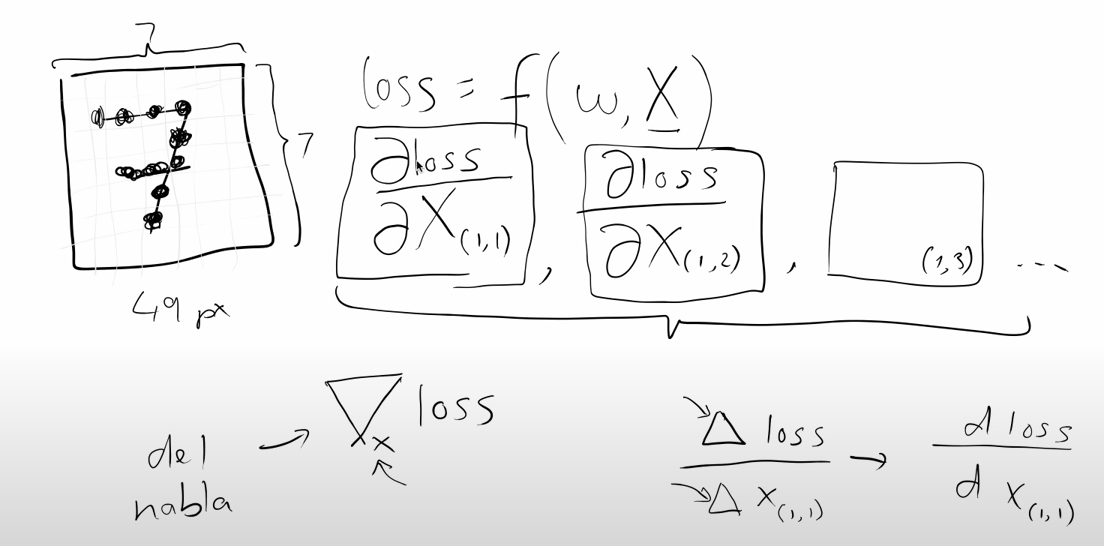 7
7
49 px
loss = f(w, X)
∂loss
∂X(1,1)
,
∂loss
∂X(1,2)
,
(1,3)
...
del
nabla
→ ∇x loss
Δ loss
Δ x(1,1)
→
d loss
d x(1,1)